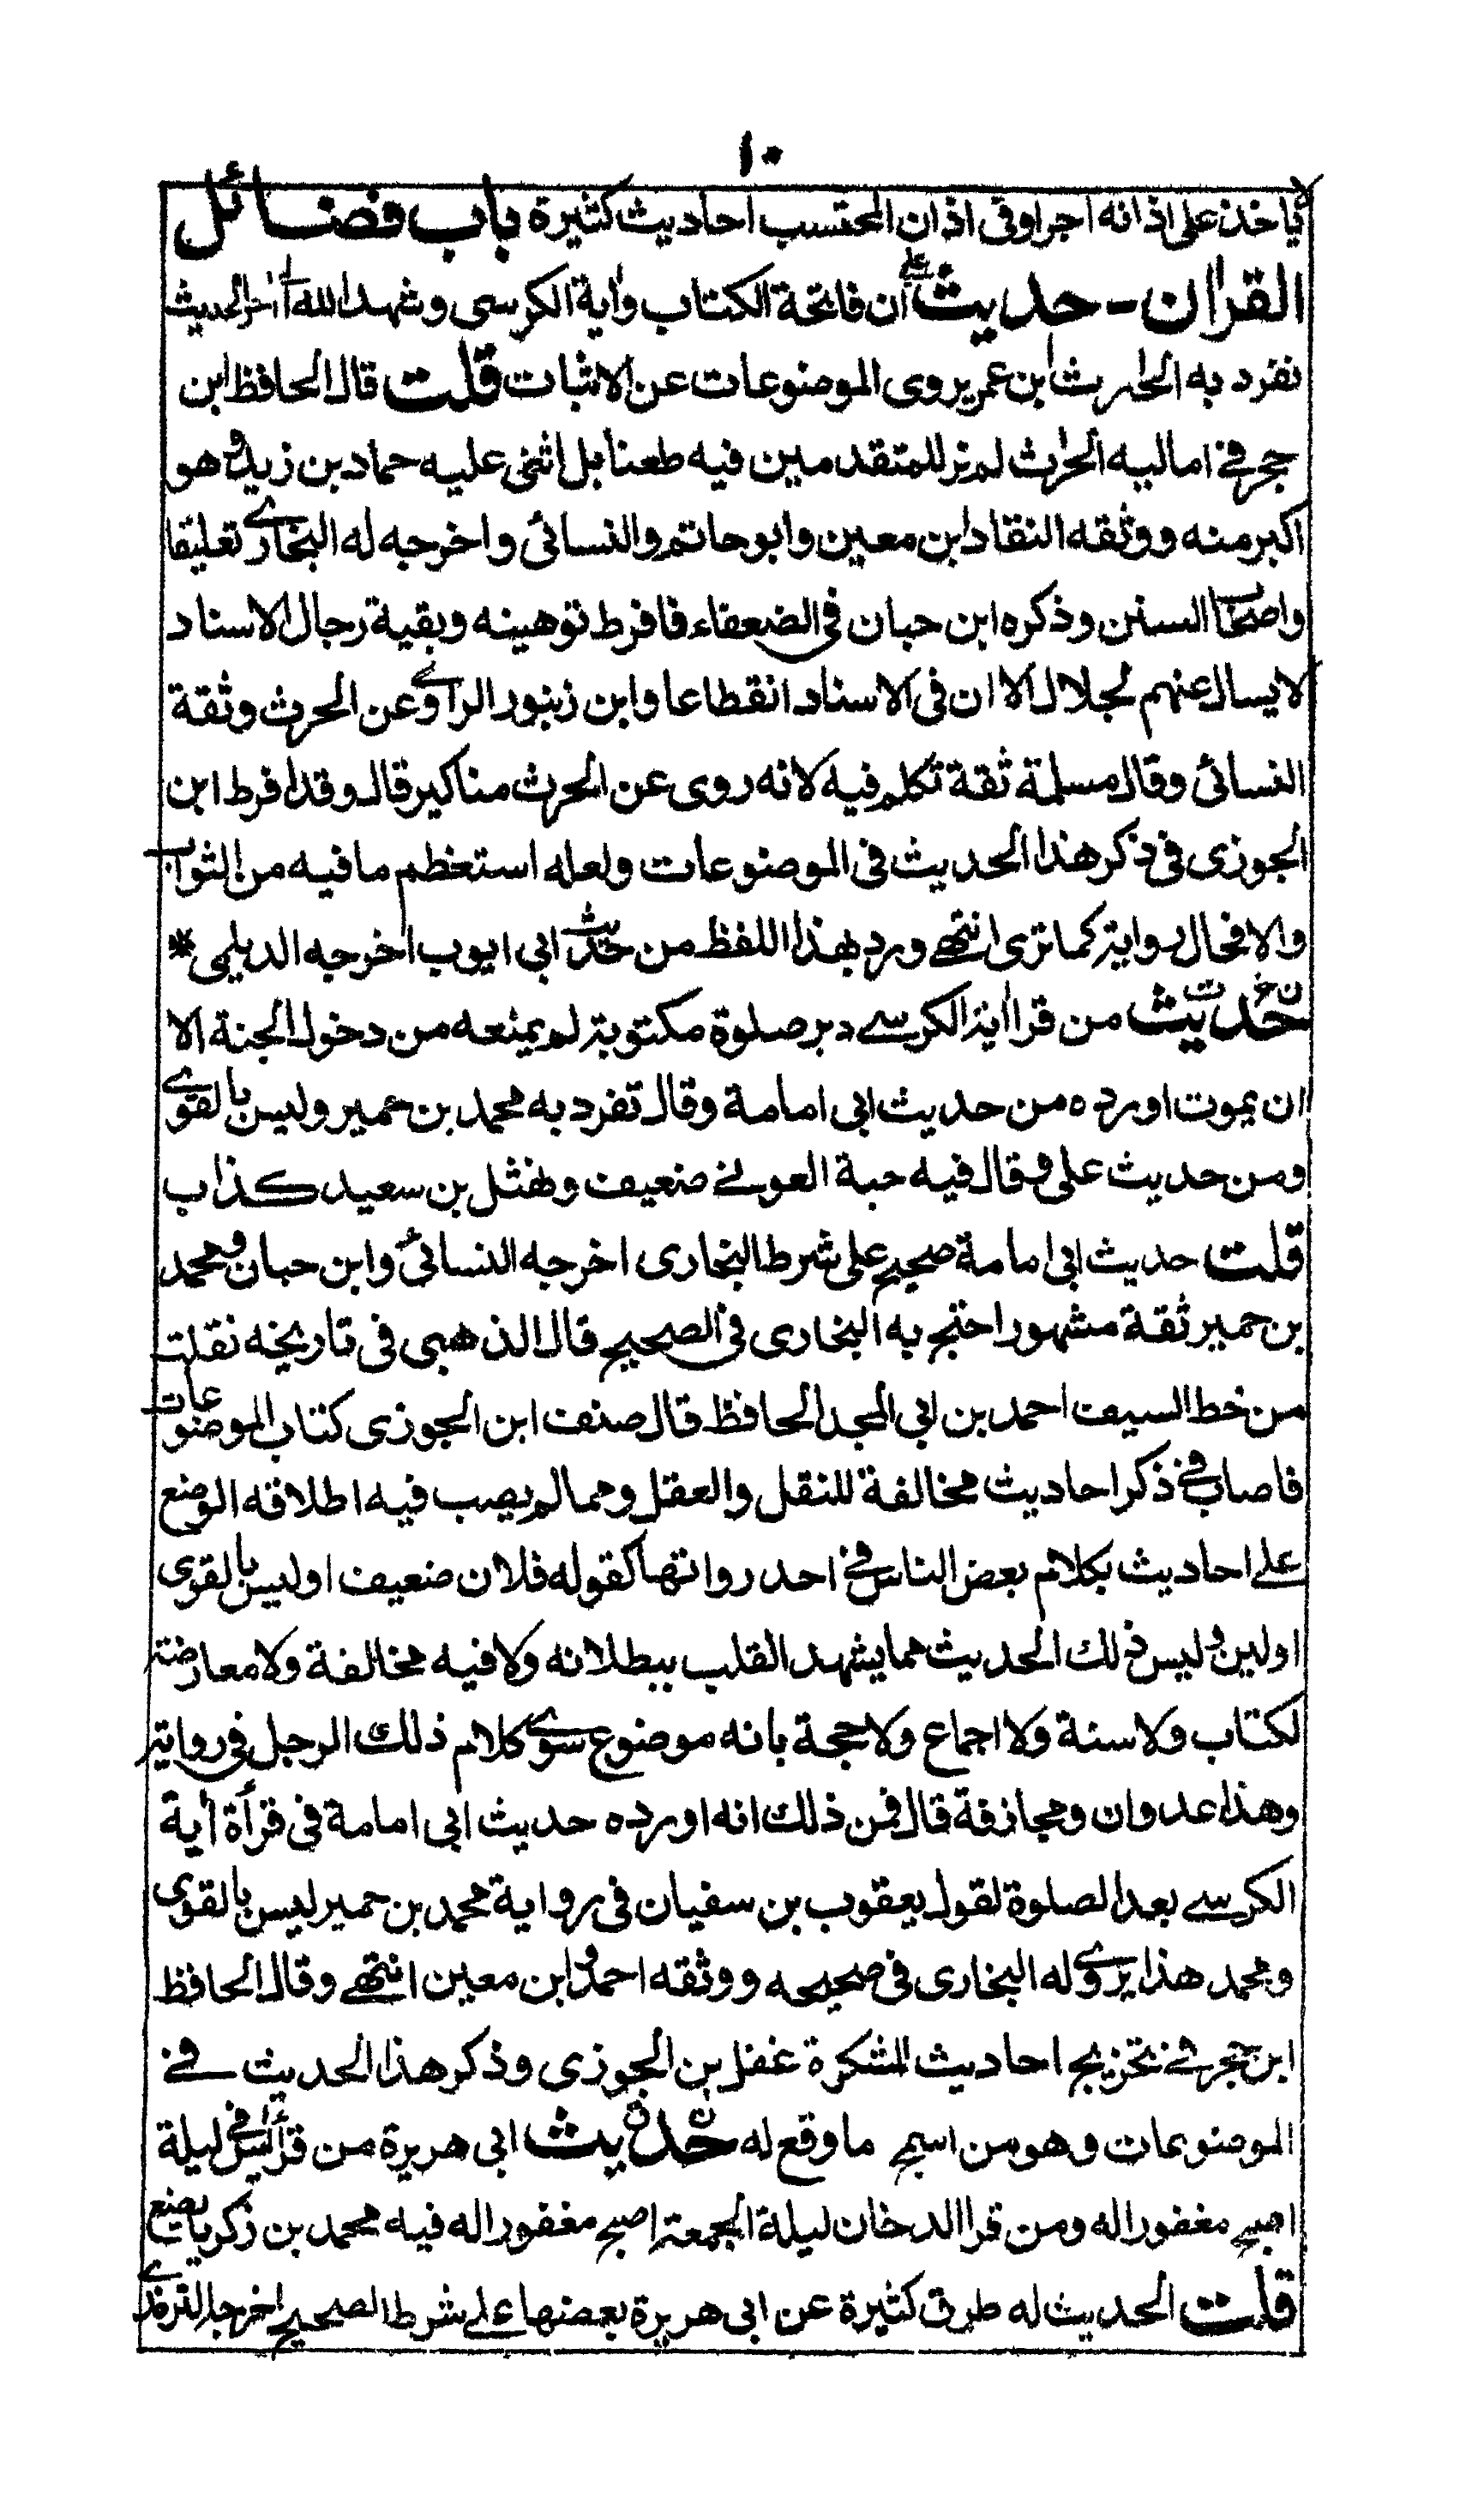 ١٠
لا ياخذ على اذانه اجرا وفى اذان المحتسب احاديث كثيرة باب فضائل
القران - حديث على ان فاتحة الكتاب واية الكرسى وشهد الله الى اخر الحديث
تفرد به الحارث ابن عمير يروى الموضوعات عن الاثبات قلت قال الحافظ ابن
حجر فى اماليه الحرث لم نر للمتقدمين فيه طعنا بل اثنى عليه حماد بن زيد وهو
اكبر منه ووثقه النقاد ابن معين وابو حاتم والنسائى واخرجه له البخارى تعليقا
واصحاب السنن وذكره ابن حبان فى الضعفاء فافرط توهينه وبقية رجال الاسناد
لا يسال عنهم لجلال الا ان فى الاسناد انقطاعا وابن زنبور الراوى عن الحرث وثقة
النسائى وقال مسلمة ثقة تكلم فيه لانه روى عن الحرث مناكير قال وقد افرط ابن
الجوزى فى ذكر هذا الحديث فى الموضوعات ولعله استعظم ما فيه من الثواب
والا فحال رواية كما ترى انتهى وورد بهذا اللفظ من حديث ابى ايوب اخرجه الديلمى *
ن ت حديث من قرا اية الكرسى دبر صلوة مكتوبة لم يمنعه من دخول الجنة الا
ان يموت اورده من حديث ابى امامة وقال تفرد به محمد بن حمير وليس بالقوى
ومن حديث على وقال فيه حبة العرنى ضعيف ونهشل بن سعيد كذاب
قلت حديث ابى امامة صحيح على شرط البخارى اخرجه النسائى وابن حبان ومحمد
بن حمير ثقة مشهور احتج به البخارى فى الصحيح قال الذهبى فى تاريخه نقلت
من خط السيف احمد بن ابى المجد الحافظ قال صنف ابن الجوزى كتاب الموضوعات
فاصاب فى ذكر احاديث مخالفة للنقل والعقل ومما لم يصب فيه اطلاقه الوضع
على احاديث بكلام بعض الناس فى احد رواتها كقوله فلان ضعيف او ليس بالقوى
او لين وليس ذلك الحديث مما يشهد القلب ببطلانه ولا فيه مخالفة ولا معارضة
لكتاب ولا سنة ولا اجماع ولا حجة بانه موضوع سوى كلام ذلك الرجل فى رواية
وهذا عدوان ومجازفة قال فمن ذلك انه اورده حديث ابى امامة فى قرأة أية
الكرسى بعد الصلوة لقول يعقوب بن سفيان فى رواية محمد بن حمير ليس بالقوى
ومحمد هذا يروى له البخارى فى صحيحه ووثقه احمد وابن معين انتهى وقال الحافظ
ابن حجر فى تخريج احاديث المشكوة غفل بن الجوزى وذكر هذا الحديث فى
الموضوعات وهو من اسمج ما وقع له حديث ابى هريرة من قرأ يس فى ليلة
اصبح مغفورا له ومن قرا الدخان ليلة الجمعة اصبح مغفورا له فيه محمد بن زكريا يضع
قلت الحديث له طرق كثيرة عن ابى هريرة بعضها على شرط الصحيح اخرجه الترمذى